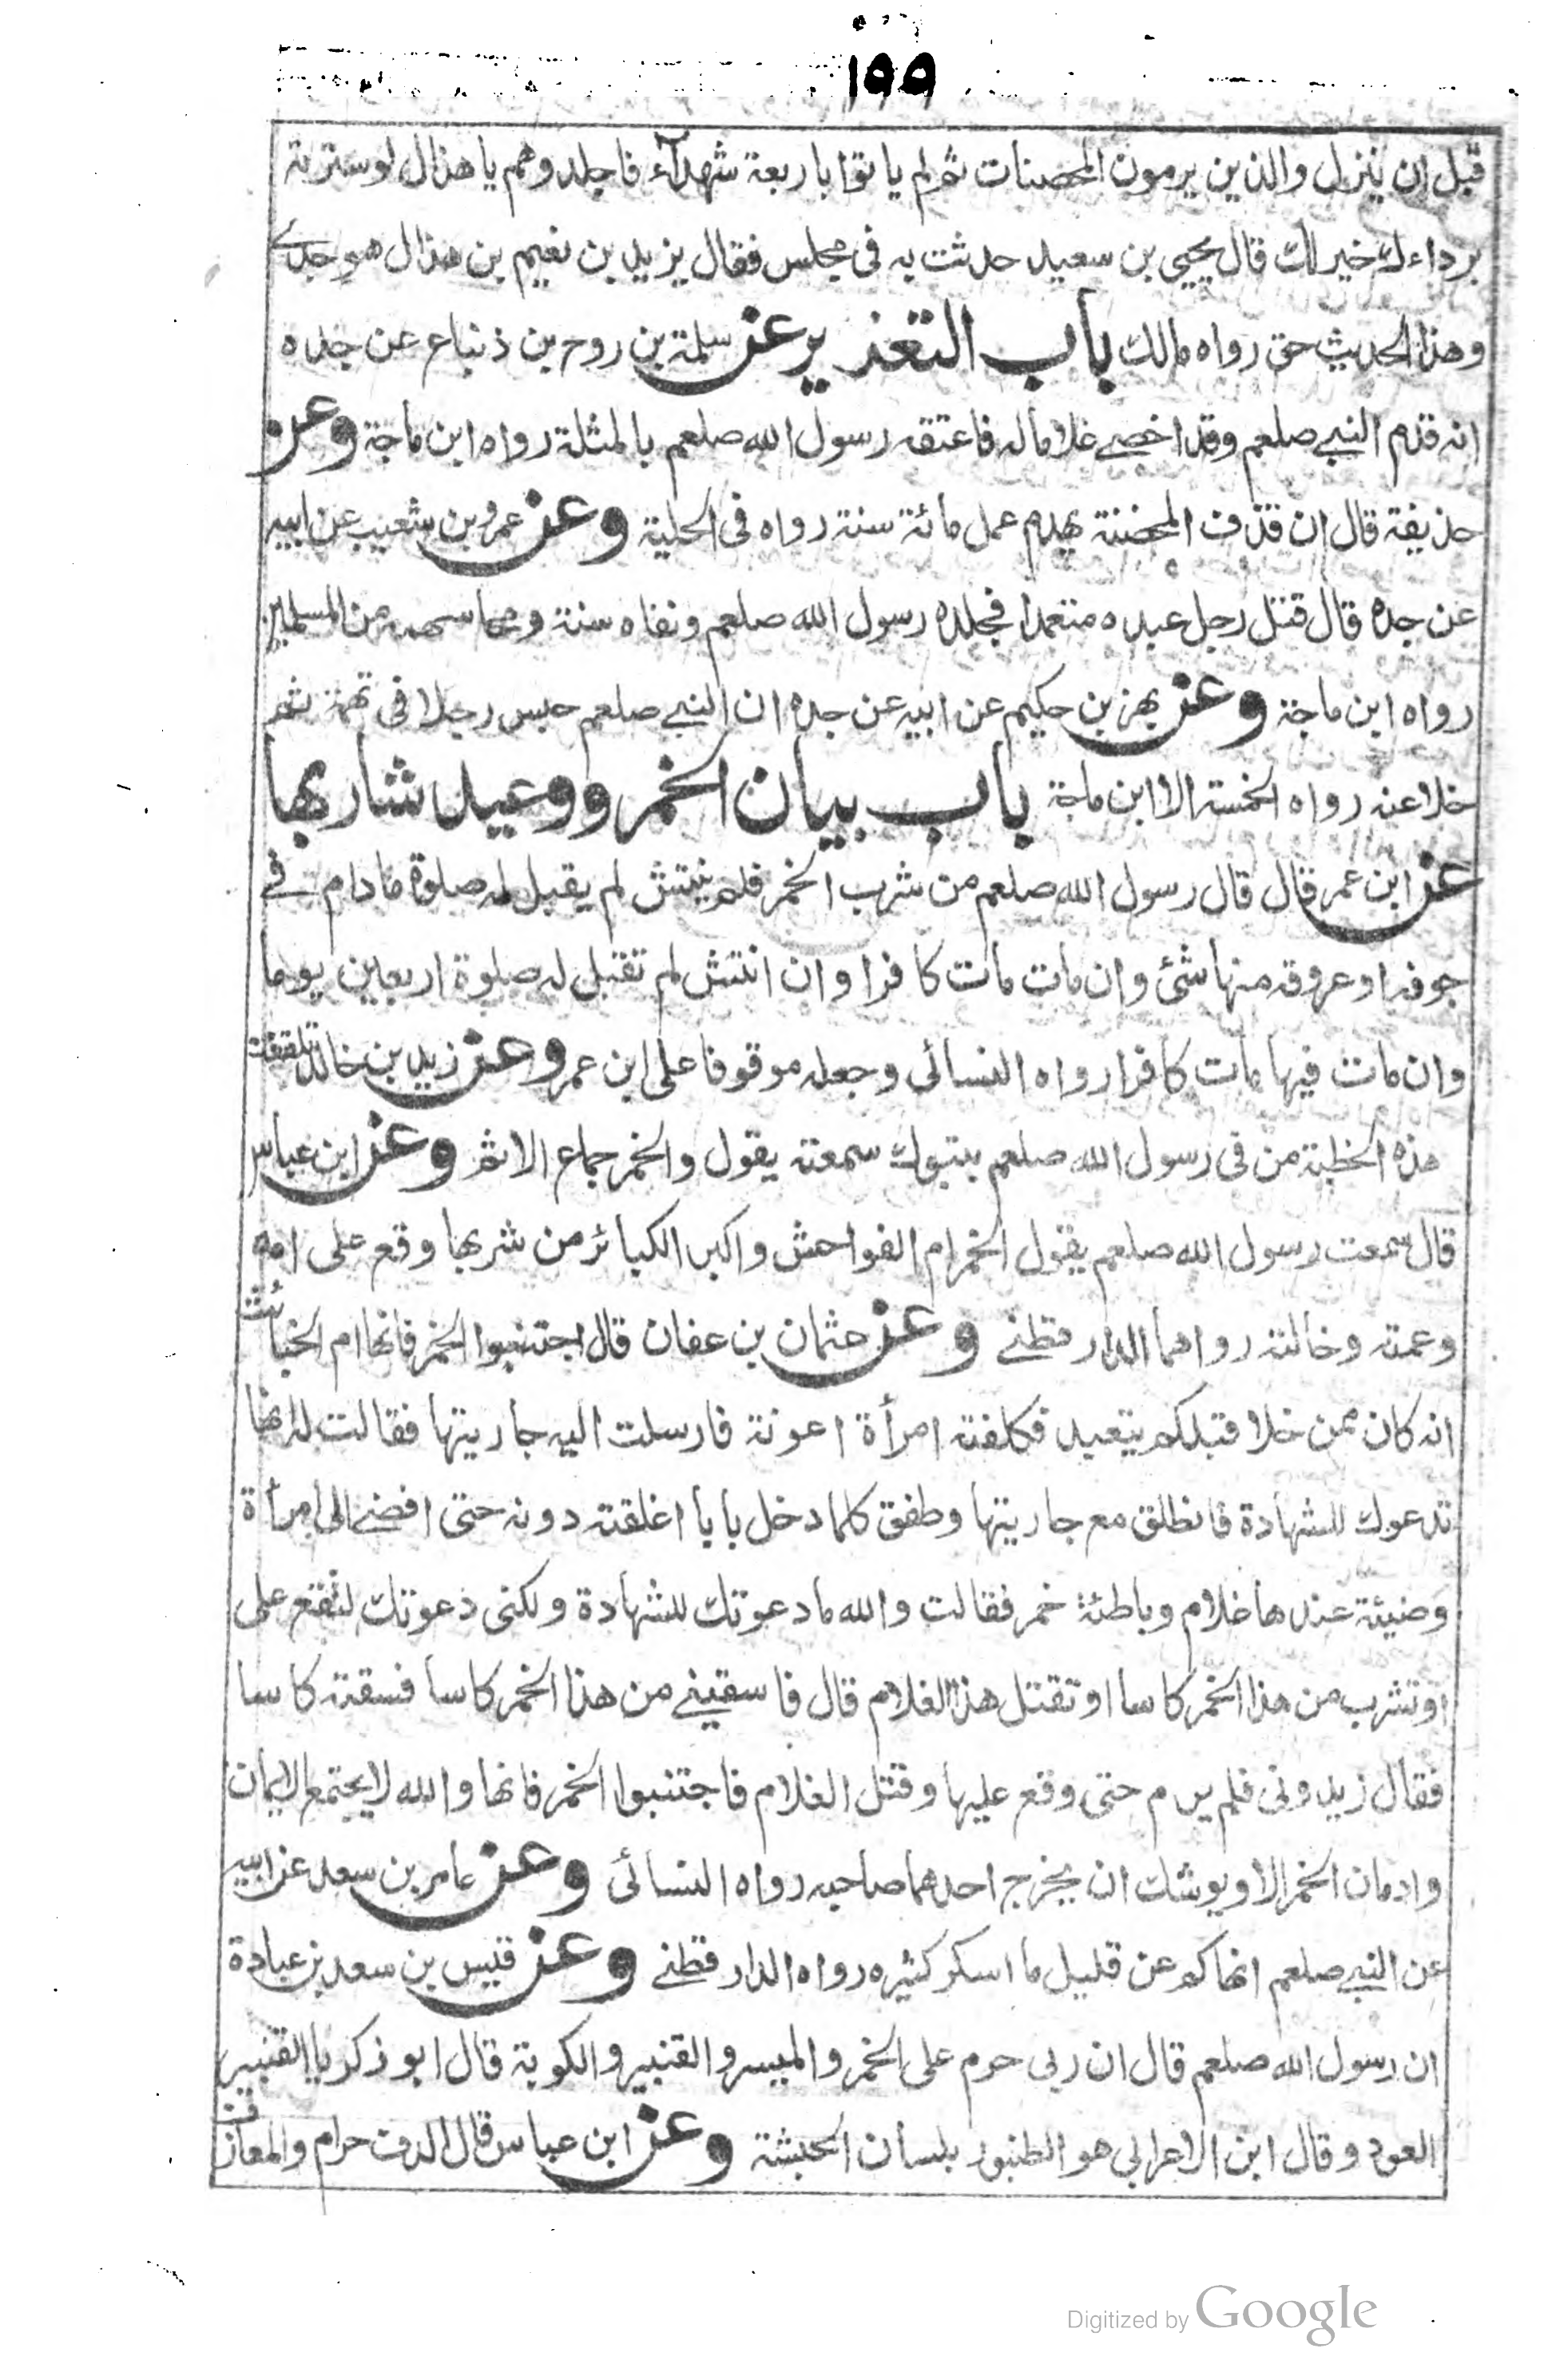 ١٥٥
قبل ان ينزل والذين يرمون المحصنات ثم لم ياتوا باربعة شهدآء فاجلدوهم يا هذال لو سترته
برداءك خير لك قال يحيى بن سعيد حدثت به فى مجلس فقال يزيد بن نعيم بن هذال هو جدے
وهذا الحديث حق رواه مالك باب التعذير عن سلمة بن روح بن ذنباع عن جده
انه قدم النبے صلعم وقد اخصے غلاما له فاعتقه رسول الله صلعم بالمثلة رواه ابن ماجة وعن
حذيفة قال ان قذف المحضنة يهدم عمل مائة سنة رواه فى الحلية وعن عمرو بن شعيب عن ابيه
عن جده قال قتل رجل عبده متعمدا فجلده رسول الله صلعم ونفاه سنة ومحا سهمه من المسلمين
رواه ابن ماجة وعن بهز بن حكيم عن ابيه عن جده ان النبے صلعم حبس رجلا فى تهمة ثم
خلا عنه رواه الخمسة الا ابن ماجة باب بيان الخمر ووعيد شاربها
عن ابن عمر قال قال رسول الله صلعم من شرب الخمر فلم ينتش لم يقبل له صلوة ما دام فے
جوفه او عروقه منها شئ وان مات مات كافرا وان انتش لم تقبل له صلوة اربعين يوما
وان مات فيها مات كافرا رواه النسائى وجعله موقوفا على ابن عمر وعن زيد بن خالد تلقفت
هذه الخطبة من فى رسول الله صلعم بتبوك سمعته يقول والخمر جماع الاثم وعن ابن عباس
قال سمعت رسول الله صلعم يقول الخمر ام الفواحش واكبر الكبائر من شربها وقع على امه
وعمته وخالته رواهما الدار قطنے وعن عثمان بن عفان قال اجتنبوا الخمر فانها ام الخبائث
انه كان ممن خلا قبلكم يتعبد فكلفته امرأة اعونة فارسلت اليه جاريتها فقالت له انها
تدعوك للشهادة فانطلق مع جاريتها وطفق كلما دخل بابا اغلقته دونه حتى افضے الى امرأة
وضيئة عندها غلام وباطئة خمر فقالت والله ما دعوتك للشهادة ولكنى دعوتك لتقع على
اوتشرب من هذا الخمر كاسا او تقتل هذا الغلام قال فاسقينے من هذا الخمر كاسا فسقته كاسا
فقال زيدونى فلم يرم حتى وقع عليها وقتل الغلام فاجتنبوا الخمر فانها والله لا يجتمع الايمان
وادمان الخمر الا ويوشك ان يخرج احدهما صاحبه رواه النسائى وعن عامر بن سعد عن ابيه
عن النبے صلعم انهاكم عن قليل ما اسكر كثيره رواه الدار قطنے وعن قيس بن سعد بن عبادة
ان رسول الله صلعم قال ان ربى حرم على الخمر والميسر والقنبير والكوبة قال ابو زكريا القنبير
العود وقال ابن الاعرابى هو الطنبور بلسان الحبشة وعن ابن عباس قال الدف حرام والمعازف
Digitized by Google